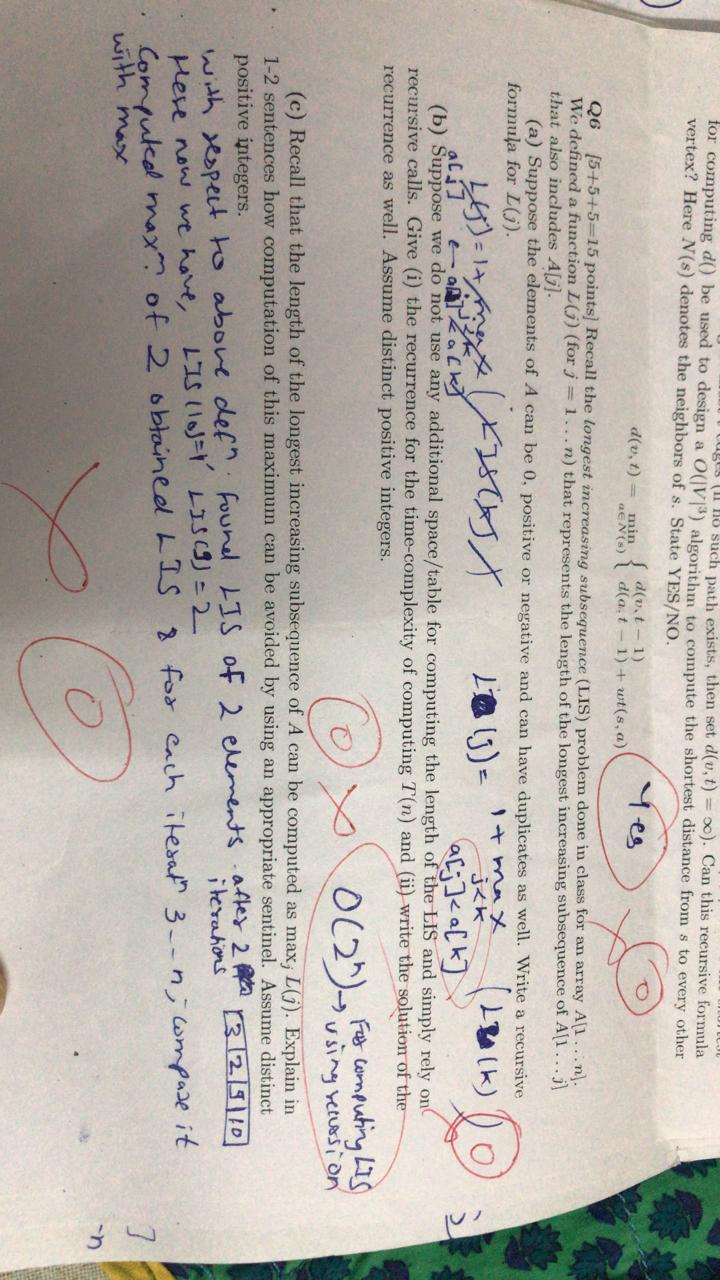 for computing d() be used to design a O(|V|³) algorithm to compute the shortest distance from s to every other
vertex? Here N(s) denotes the neighbors of s. State YES/NO.
d(v, t) = min a∈N(s) { d(v, t − 1)
d(a, t − 1) + wt(s, a)
Yes
0
Q6 [5+5+5=15 points] Recall the longest increasing subsequence (LIS) problem done in class for an array A[1...n].
We defined a function L(j) (for j = 1...n) that represents the length of the longest increasing subsequence of A[1...j]
that also includes A[j].
(a) Suppose the elements of A can be 0, positive or negative and can have duplicates as well. Write a recursive
formula for L(j).
L(j) = 1 + max (LIS(k))
j<k
a[j] ← a[j] < a[k]
L(j) = 1 + max (L(k))
j<k
a[j]<a[k]
0
(b) Suppose we do not use any additional space/table for computing the length of the LIS and simply rely on
recursive calls. Give (i) the recurrence for the time-complexity of computing T(n) and (ii) write the solution of the
recurrence as well. Assume distinct positive integers.
0
O(2ⁿ) → For computing LIS
using recussion
(c) Recall that the length of the longest increasing subsequence of A can be computed as maxⱼ L(j). Explain in
1-2 sentences how computation of this maximum can be avoided by using an appropriate sentinel. Assume distinct
positive integers.
with respect to above defⁿ. found LIS of 2 elements after 2
iterations
3 2 9 10
Here now we have, LIS(10)=1, LIS(9)=2
Computed maxm. of 2 obtained LIS & for each iteratⁿ 3--n, compare it
with max
0
]
-n